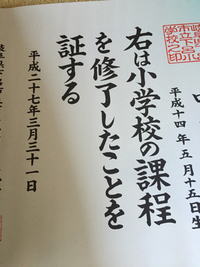 平成十四年五月十五日生
右は小学校の課程
を修了したことを
証する
平成二十七年三月三十一日